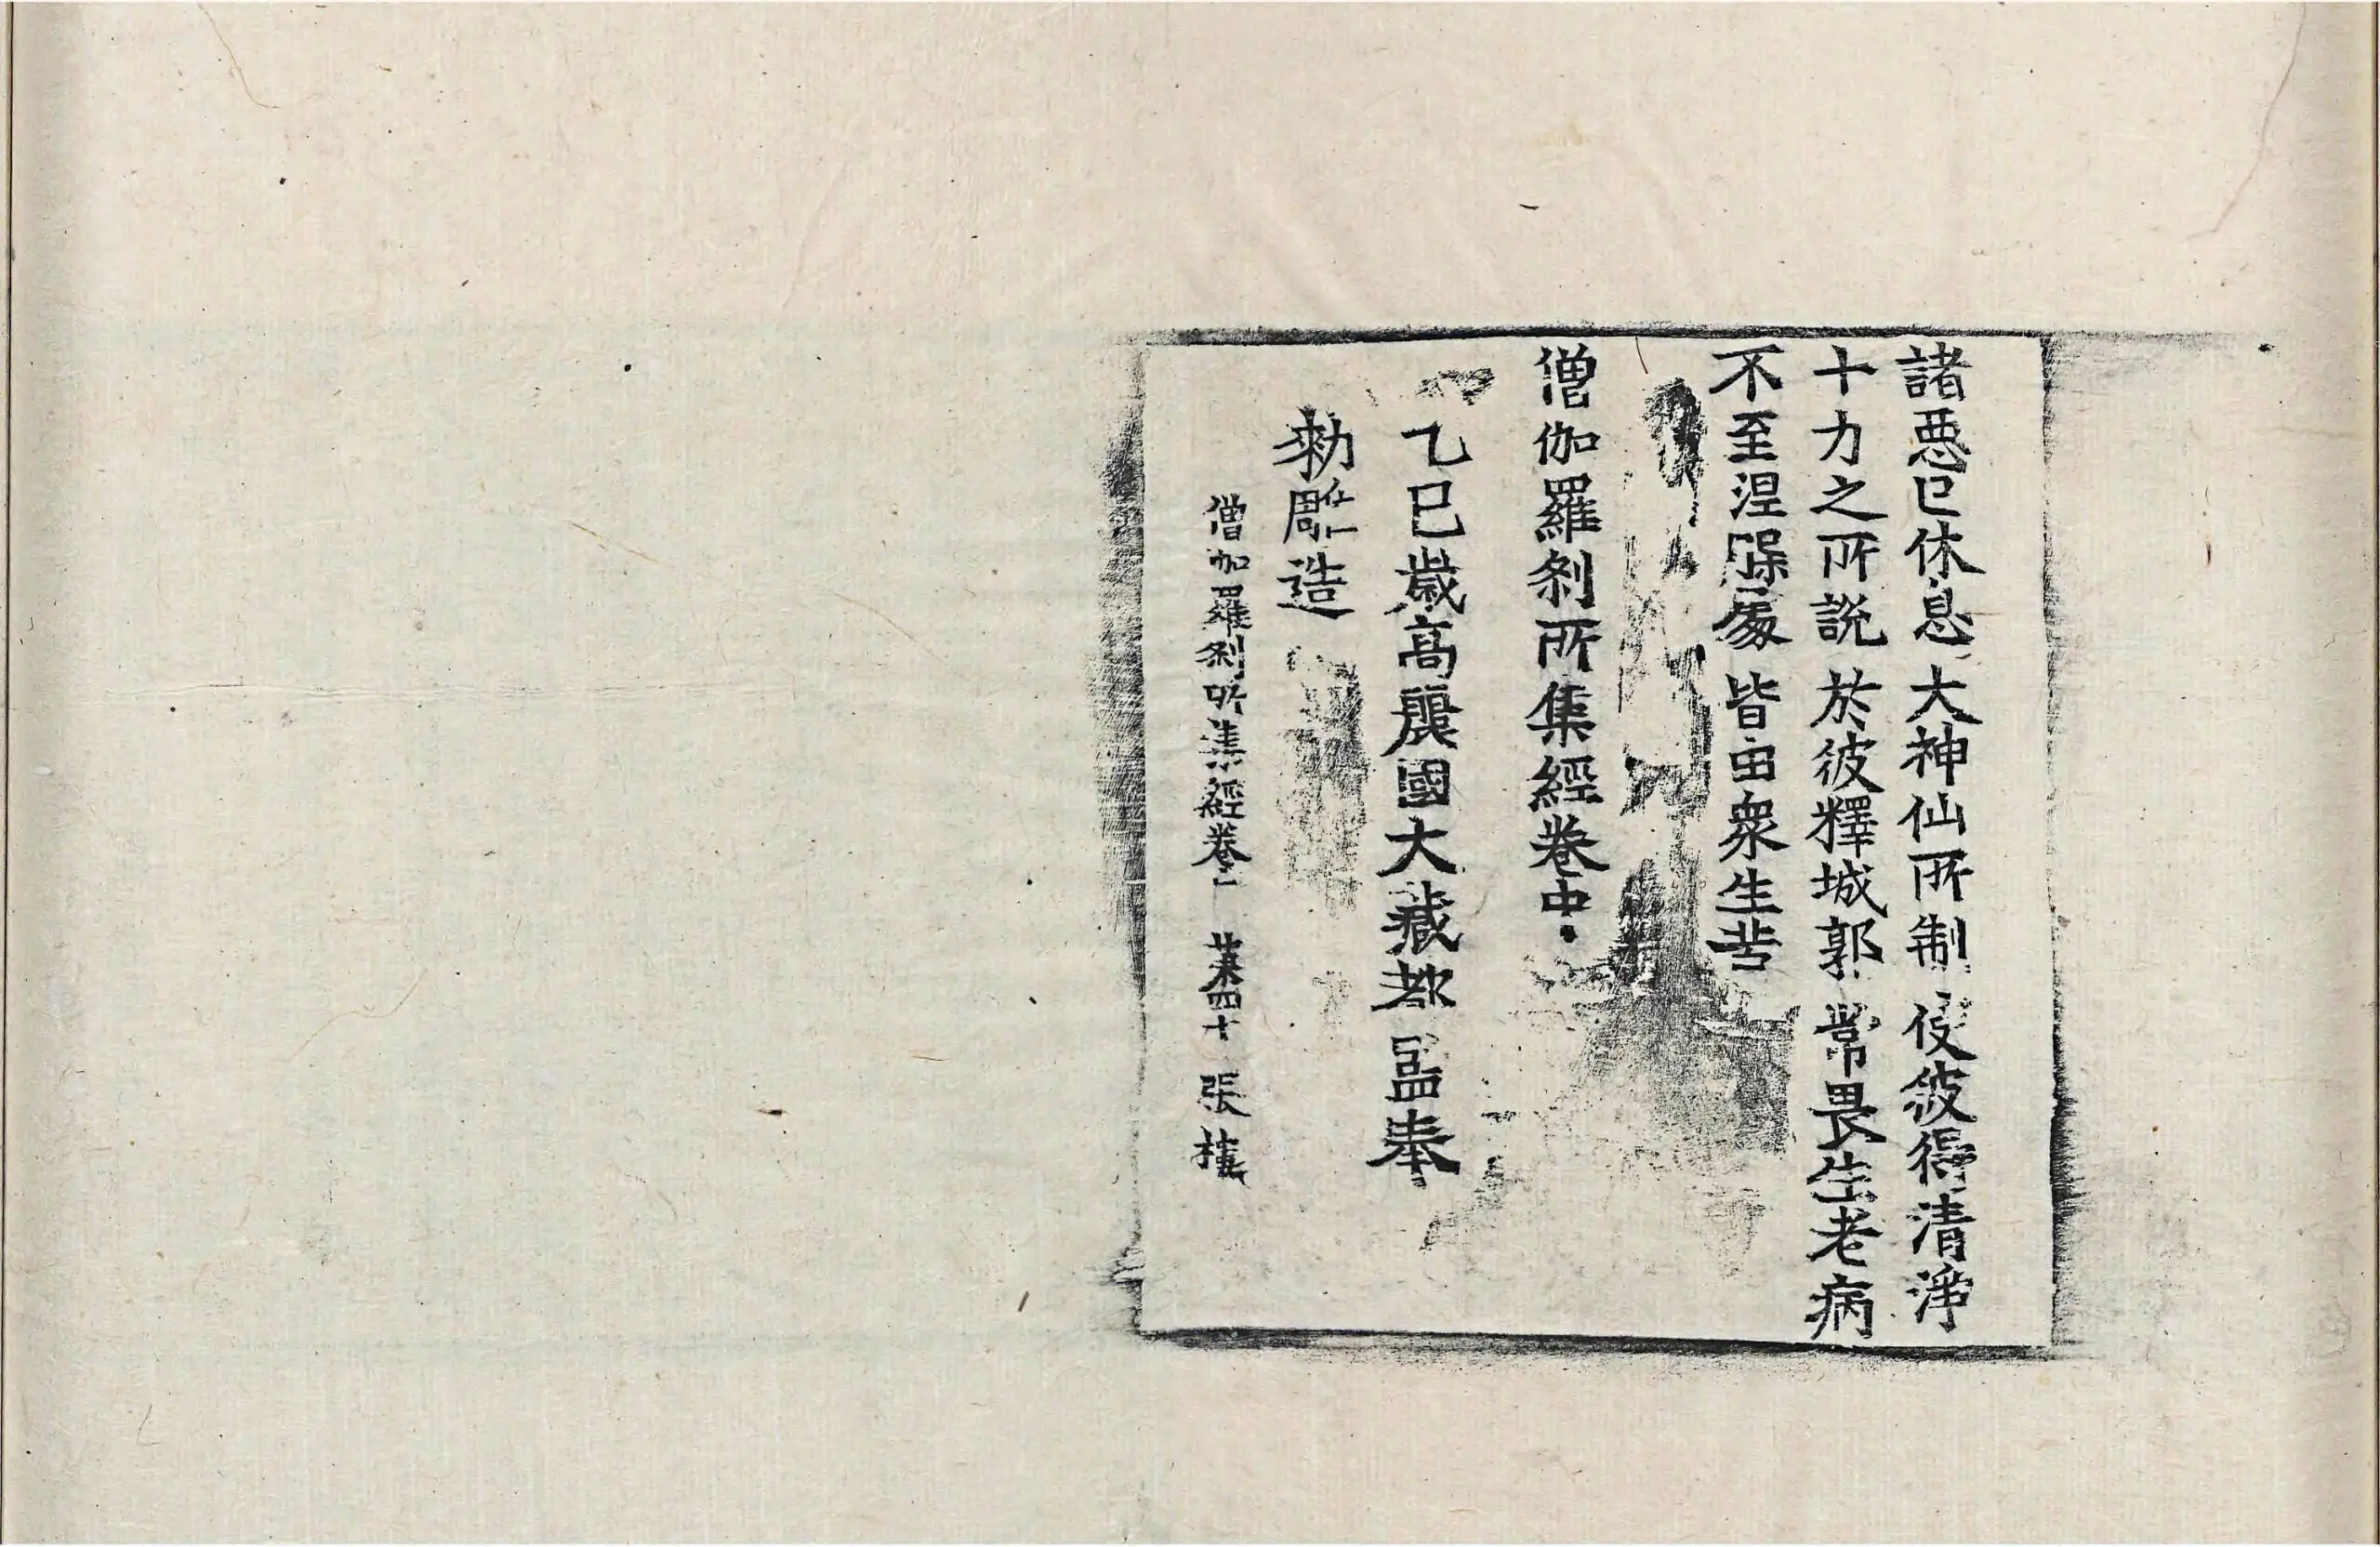 諸惡已休息 大神仙所制 彼彼得清淨
十力之所説 於彼釋城郭 常畏生老病
不至涅槃處 皆由衆生苦
僧伽羅刹所集經卷中
乙巳歲高麗國大藏都監奉
勅雕造
僧伽羅刹所集經卷 四十 張